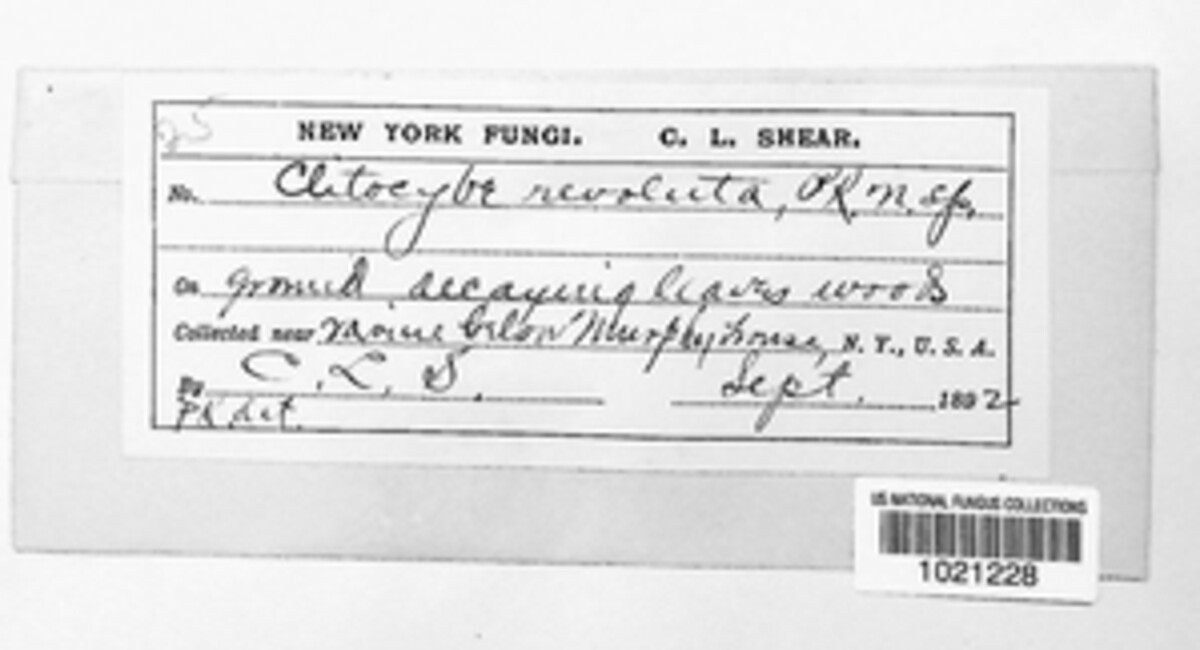 25
NEW YORK FUNGI. C. L. SHEAR.
No. Clitocybe revoluta, Pk. n. sp.
On ground decaying leaves woods
Collected near ravine below Murphy house, N. Y., U. S. A.
By C. L. S. Sept. 1892
Pk. det.
US NATIONAL FUNGUS COLLECTIONS
1021228